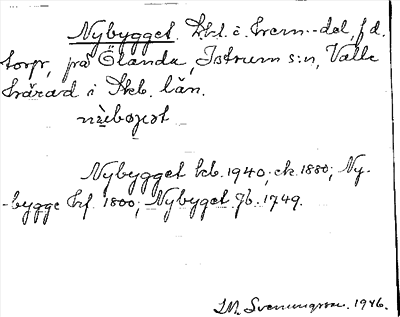 Nybygget. Lht. i Krom.-del, f.d.
torp, på Ölanda, Istrum s:n, Valle
härad i Skb. län.
Nybygget hb. 1940; ek. 1880; Ny-
-bygge hf. 1800; Nybyget Jb. 1749.
M. Svenungsson. 1946.